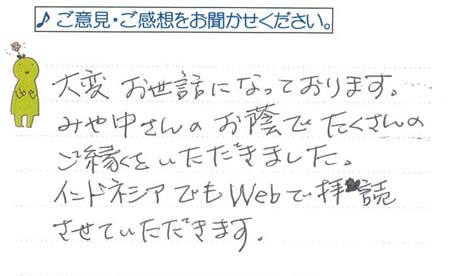 ♪ご意見・ご感想をお聞かせください。
大変 お世話になっております。
みや中さんのお蔭でたくさんの
ご縁をいただきました。
インドネシアでもWebで拝読
させていただきます。